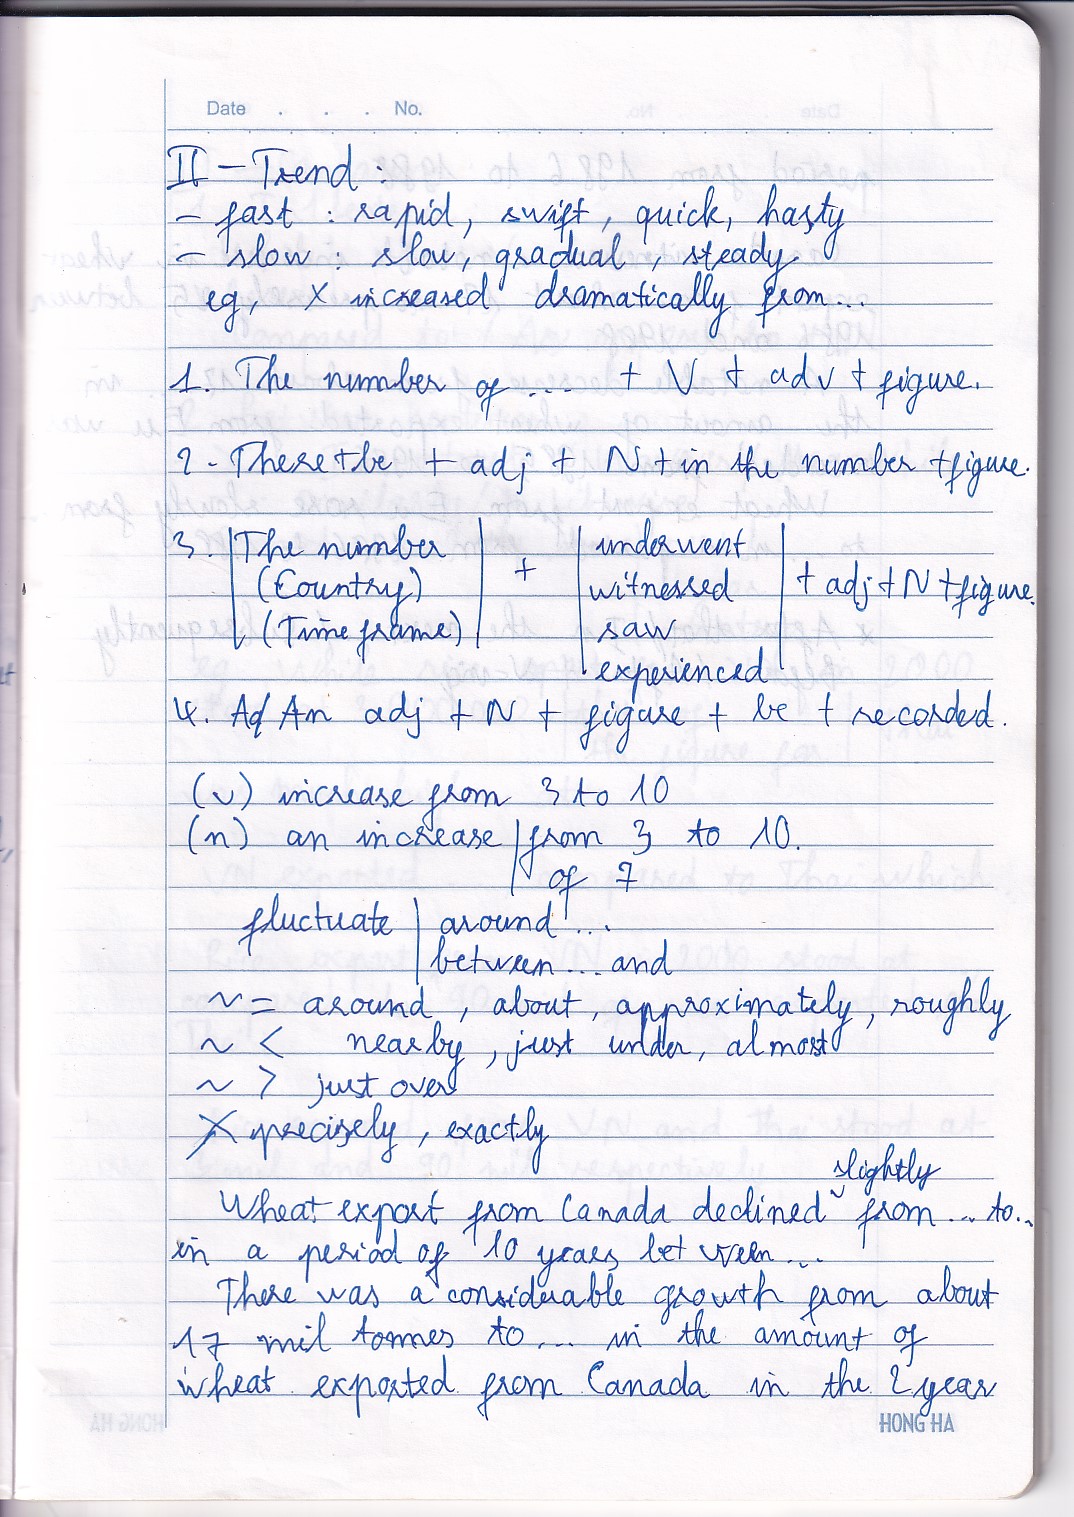 Date . . . No.
II – Trend :
– fast : rapid, swift, quick, hasty
– slow : slow, gradual, steady.
eg, X increased dramatically from...
1. The number of ... + V + adv + figure.
2. There + be + adj + N + in the number + figure.
3. The number + underwent
(Country) witnessed + adj + N + figure.
(Time frame) saw
experienced
4. A/ An adj + N + figure + be + recorded.
(v) increase from 3 to 10
(n) an increase from 3 to 10.
of 7
fluctuate around ...
between ... and
~ = around, about, approximately, roughly
~ < nearby, just under, almost
~ > just over
X precisely, exactly
slightly
Wheat export from Canada declined from ... to...
in a period of 10 years between ...
There was a considerable growth from about
17 mil tonnes to ... in the amount of
wheat exported from Canada in the 2 year
HONG HA